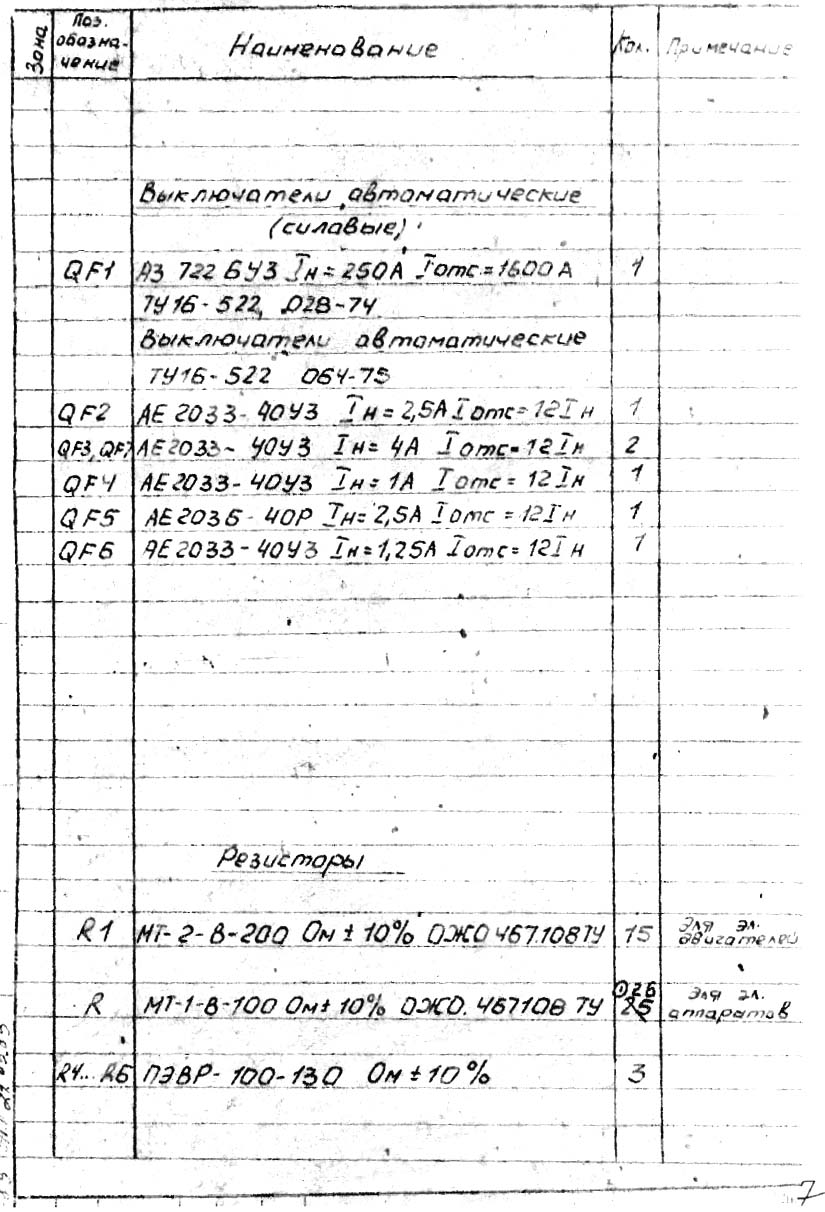 Зона
Поз. обозна- чение
Наименование
Кол.
Примечание
Выключатели автоматические
(силовые)
QF1 А3 722 БУЗ Iн = 250А Iотс = 1600 А 1
ТУ16-522. 028-74
Выключатели автоматические
ТУ16-522 064-75
QF2 АЕ 2033-40У3 Iн = 2,5А Iотс = 12Iн 1
QF3, QF7 АЕ2033- 40У3 Iн = 4А Iотс = 12Iн 2
QF4 АЕ2033-40У3 Iн = 1А Iотс = 12Iн 1
QF5 АЕ2036-40Р Iн = 2,5А Iотс = 12Iн 1
QF6 АЕ2033-40У3 Iн = 1,25А Iотс = 12Iн 1
Резисторы
R1 МТ-2-В-200 Ом ± 10% ОЖО 467.108ТУ 15 Для эл. двигателей
R МТ-1-В-100 Ом ± 10% ОЖО. 467108 ТУ 26 25 Для эл. аппаратов
R4.. R6 ПЭВР-100-130 Ом ± 10% 3
7